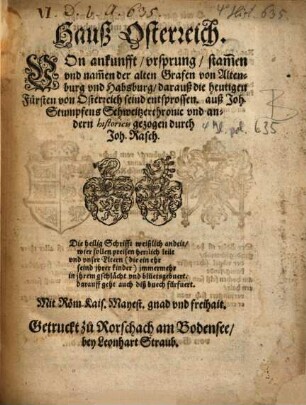 VI. D. b. A. 635.
4° Hist. 635.
Hauß Osterreich.
VOn ankunfft/ vrsprung/ stam̃en
vnd nam̃en der alten Grafen von Alten-
burg vnd Habsburg/ darauß die heutigen
Fürsten von Osterreich seind entsprossen. auß Joh.
Stumpfens Schweitzerchronic vnd an-
dern historicis gezogen durch
Joh. Rasch.
635
Die heilig Schrifft weißlich andeit/
wier sollen preisen herrlich leüt
vnd vnser Elteren (die ein ehr
seind jhrer kinder) immermehr
in jhrem gschlächt vnd blüetgebuert:
darauff geht auch diß buech fürfuert.
Mit Röm. Kais. Mayest. gnad vnd freihait.
Getruckt zů Rorschach am Bodensee/
bey Leonhart Straub.